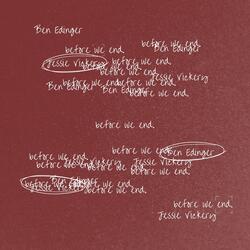 Ben Edinger
before we end,
Ben Edinger
before we end,
Jessie Vickery
before we end,
before we end,
before we end,
before we end,
before we end,
Ben Edinger
Ben Edinger
before we end,
before we end,
before we end,
Ben Edinger
before we end,
Jessie Vickery
Jessie Vickery
before we end,
before we end,
Ben Edinger
before we end,
Jessie Vickery
before we end,
before we end,
Jessie Vickery